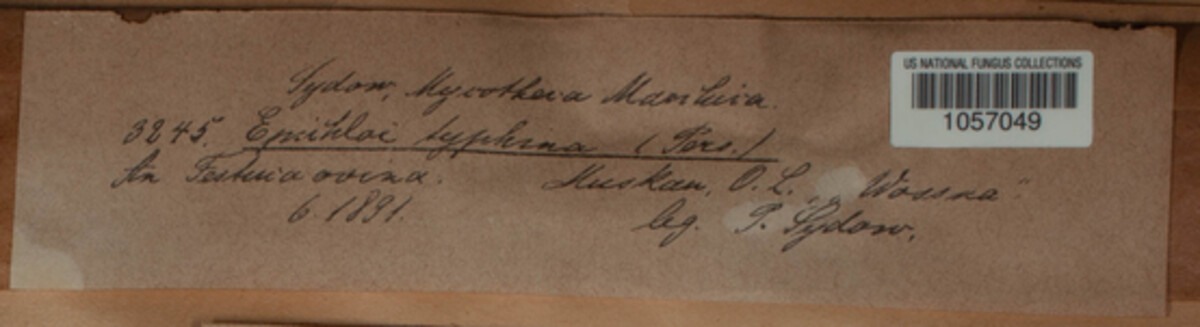 Sydow, Mycotheca Marchica.
3245. Epichloë typhina (Pers.)
An Festuca ovina. Muskau, O. L. „Wossna“
6 1891. leg. P. Sydow.
US NATIONAL FUNGUS COLLECTIONS
1057049